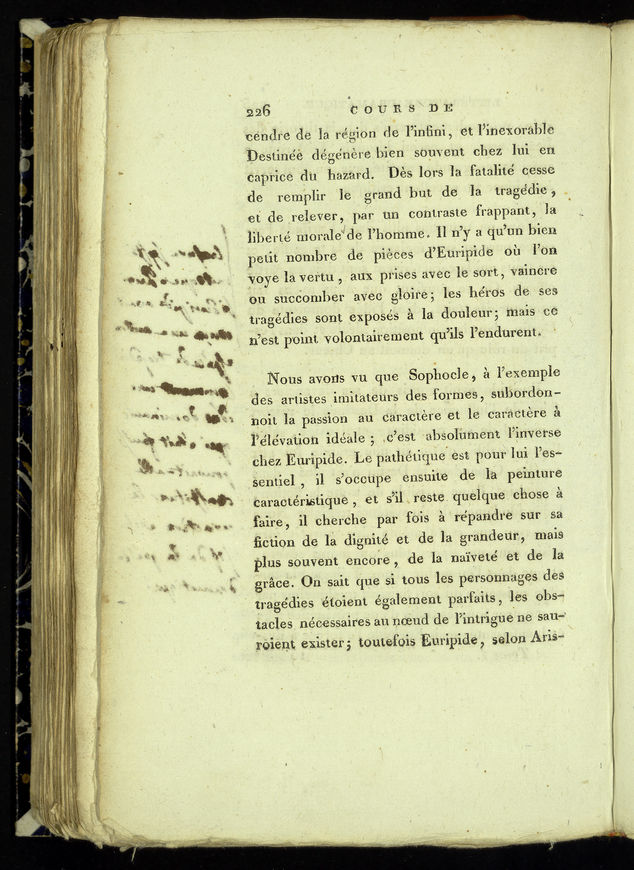 226 COURS DE
cendre de la région de l'infini, et l'inexorable
Destinée dégénère bien souvent chez lui en
caprice du hazard. Dès lors la fatalité cesse
de remplir le grand but de la tragédie,
et de relever, par un contraste frappant, la
liberté morale de l'homme. Il n'y a qu'un bien
petit nombre de pièces d'Euripide où l'on
voye la vertu, aux prises avec le sort, vaincre
ou succomber avec gloire; les héros de ses
tragédies sont exposés à la douleur; mais ce
n'est point volontairement qu'ils l'endurent.
Nous avons vu que Sophocle, à l'exemple
des artistes imitateurs des formes, subordon-
noit la passion au caractère et le caractère à
l'élévation idéale; c'est absolument l'inverse
chez Euripide. Le pathétique est pour lui l'es-
sentiel, il s'occupe ensuite de la peinture
caractéristique, et s'il reste quelque chose à
faire, il cherche par fois à répandre sur sa
fiction de la dignité et de la grandeur, mais
plus souvent encore, de la naïveté et de la
grâce. On sait que si tous les personnages des
tragédies étoient également parfaits, les obs-
tacles nécessaires au nœud de l'intrigue ne sau-
roient exister; toutefois Euripide, selon Aris-